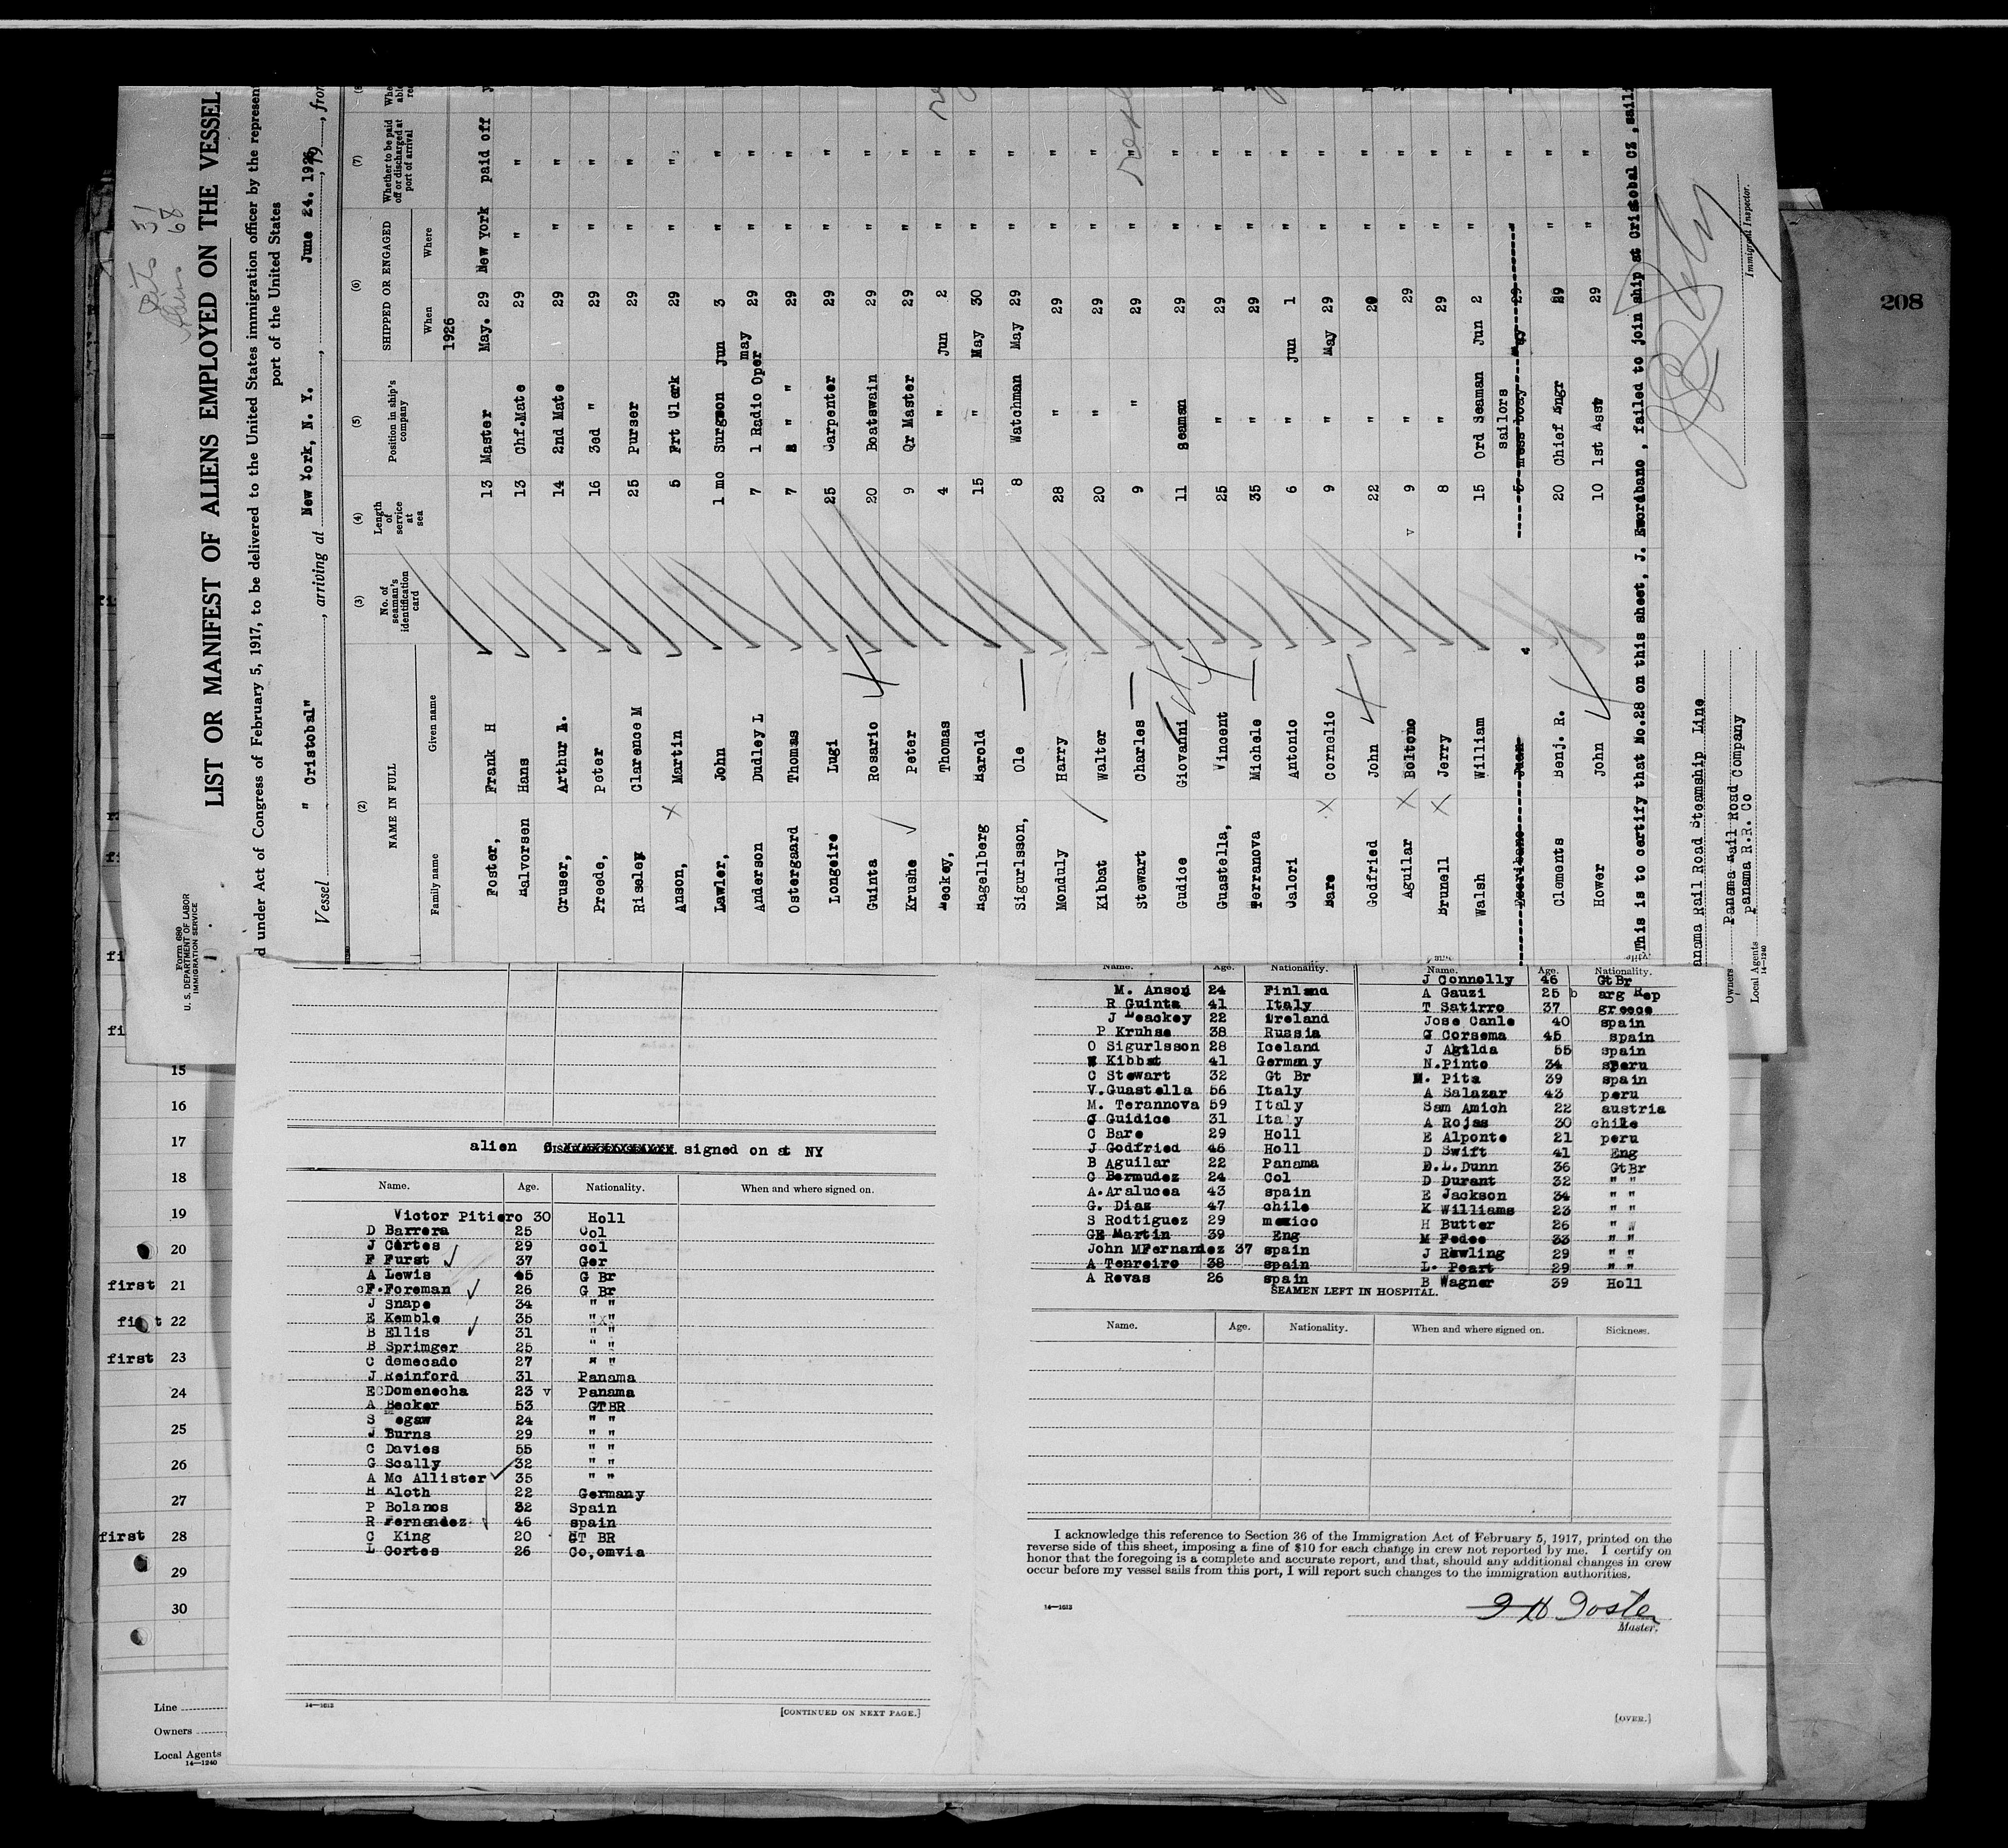 208
Form 680
U. S. DEPARTMENT OF LABOR
IMMIGRATION SERVICE
31
Aliens 68
LIST OR MANIFEST OF ALIENS EMPLOYED ON THE VESSEL
d under Act of Congress of February 5, 1917, to be delivered to the United States immigration officer by the represen
port of the United States
Vessel " Cristobal" , arriving at New York, N. Y. , June 24. 1926, 19 , from
(2) (3) (4) (5) (6) (7) (8
NAME IN FULL No. of seaman's identification card Length of service at sea Position in ship's company SHIPPED OR ENGAGED Whether to be paid off or discharged at port of arrival
Family name Given name When Where
1926
Foster, Frank H 13 Master May. 29 New York paid off y
Halvorsen Hans 13 Chf.Mate 29 " "
Cruser, Arthur A. 14 2nd Mate 29 " "
Preede, Peter 16 3ed " 29 " "
Riseley Clarence M 25 Purser 29 " "
Anson, x Martin 5 Frt Clerk 29 " "
Lawler, John 1 mo Surgeon Jun 3 " "
Anderson Dudley L 7 1 Radio Oper may 29 " "
Ostergaard Thomas 7 2 " " 29 " "
Longeire Lugi 25 Carpenter 29 " "
Guinta Rosario 20 Boatswain 29 " "
Krushe Peter 9 Qr Master 29 " "
Leckey, Thomas 4 " Jun 2 " "
Hagellberg Harold 15 " May 30 " "
Sigurlsson, Ole 8 Watchman May 29 " "
Monduly Harry 28 " 29 " "
Kibbat Walter 20 " 29 " "
Stewart Charles 9 " 29 " "
Gudice Giovanni 11 Seaman 29 " "
Guastella, Vincent 25 " 29 " "
Terranova Michele 35 " 29 " "
Calori Antonio 6 " Jun 1 " "
Bare x Cornelio 9 " May 29 " "
Godfried John 22 " 29 " "
Aguilar x Boltono 9 " 29 " "
Brunell x Jerry 8 " 29 " "
Walsh William 15 Ord Seaman Jun 2 " "
sailors
Escribano Juan 5 mess boay May 29 "
Clements Benj. R. 20 Chief Engr 29 " "
Hower John 10 1st Asst 29 " "
This is to certify that No.28 on this sheet, J. Escribano , failed to join ship at Cristobal CZ ,saili
anama Rail Road Steamship Line
Owners Panama Rail Road Company
Local Agents panama R.R. Co
14—1240
Immigrant Inspector.
alien signed on at NY
Name. Age. Nationality. When and where signed on.
Victor Pitiero 30 Holl
D Barrera 25 Col
J Cortes 29 col
F Furst 37 Ger
A Lewis 45 G Br
F.Foreman 26 G Br
J Snape 34 " "
E Kemble 35 " "
B Ellis 31 " "
B Springer 25 " "
C demecado 27 " "
J Reinford 31 Panama
EC Domenecha 23 v Panama
A Becker 53 GTBR
S Megaw 24 " "
J Burns 29 " "
C Davies 55 " "
G Scally 32 " "
A Mc Allister 35 " "
H Kloth 22 Germany
P Bolanos 32 Spain
R Fernandez 46 spain
C King 20 GT BR
L Cortes 26 Co,omvia
14—1613
[CONTINUED ON NEXT PAGE.]
Name. Age. Nationality.
M. Anson 24 Finland
R Guinta 41 Italy
J Leackey 22 Ireland
P Kruhse 38 Russia
O Sigurlsson 28 Iceland
W Kibbat 41 Germany
C Stewart 32 Gt Br
V.Guastella 56 Italy
M. Terannova 59 Italy
G Guidice 31 Italy
C Bare 29 Holl
J Godfried 46 Holl
B Aguilar 22 Panama
C Bermudez 24 Col
A.Aralucea 43 spain
G. Diaz 47 chile
S Rodtiguez 29 mexico
GE Martin 39 Eng
John MFernandez 37 spain
A Tenreiro 38 spain
A Revas 26 spain
Name. Age. Nationality.
J Connolly 46 GtBr
A Gauzi 25 b arg Rep
T Satirro 37 greece
Jose Canle 40 spain
G Corsema 45 spain
J Agilda 55 spain
N.Pinto 34 speru
M. Pita 39 spain
A Salazar 43 peru
Sam Amich 22 austria
A Rojas 30 chile
E Alponte 21 peru
D Swift 41 Eng
E.L.Dunn 36 GtBr
D Durant 32 " "
E Jackson 34 " "
K Williams 23 " "
H Butter 26 " "
M Fedee 33 " "
J Rawling 29 " "
L. Peart 29 " "
B Wagner 39 Holl
SEAMEN LEFT IN HOSPITAL.
Name. Age. Nationality. When and where signed on. Sickness.
I acknowledge this reference to Section 36 of the Immigration Act of February 5, 1917, printed on the
reverse side of this sheet, imposing a fine of $10 for each change in crew not reported by me. I certify on
honor that the foregoing is a complete and accurate report, and that, should any additional changes in crew
occur before my vessel sails from this port, I will report such changes to the immigration authorities.
14—1613
F H Foster
Master.
[OVER.]
15
16
17
18
19
20
first 21
first 22
first 23
24
25
26
27
first 28
29
30
Line
Owners
Local Agents
14—1240